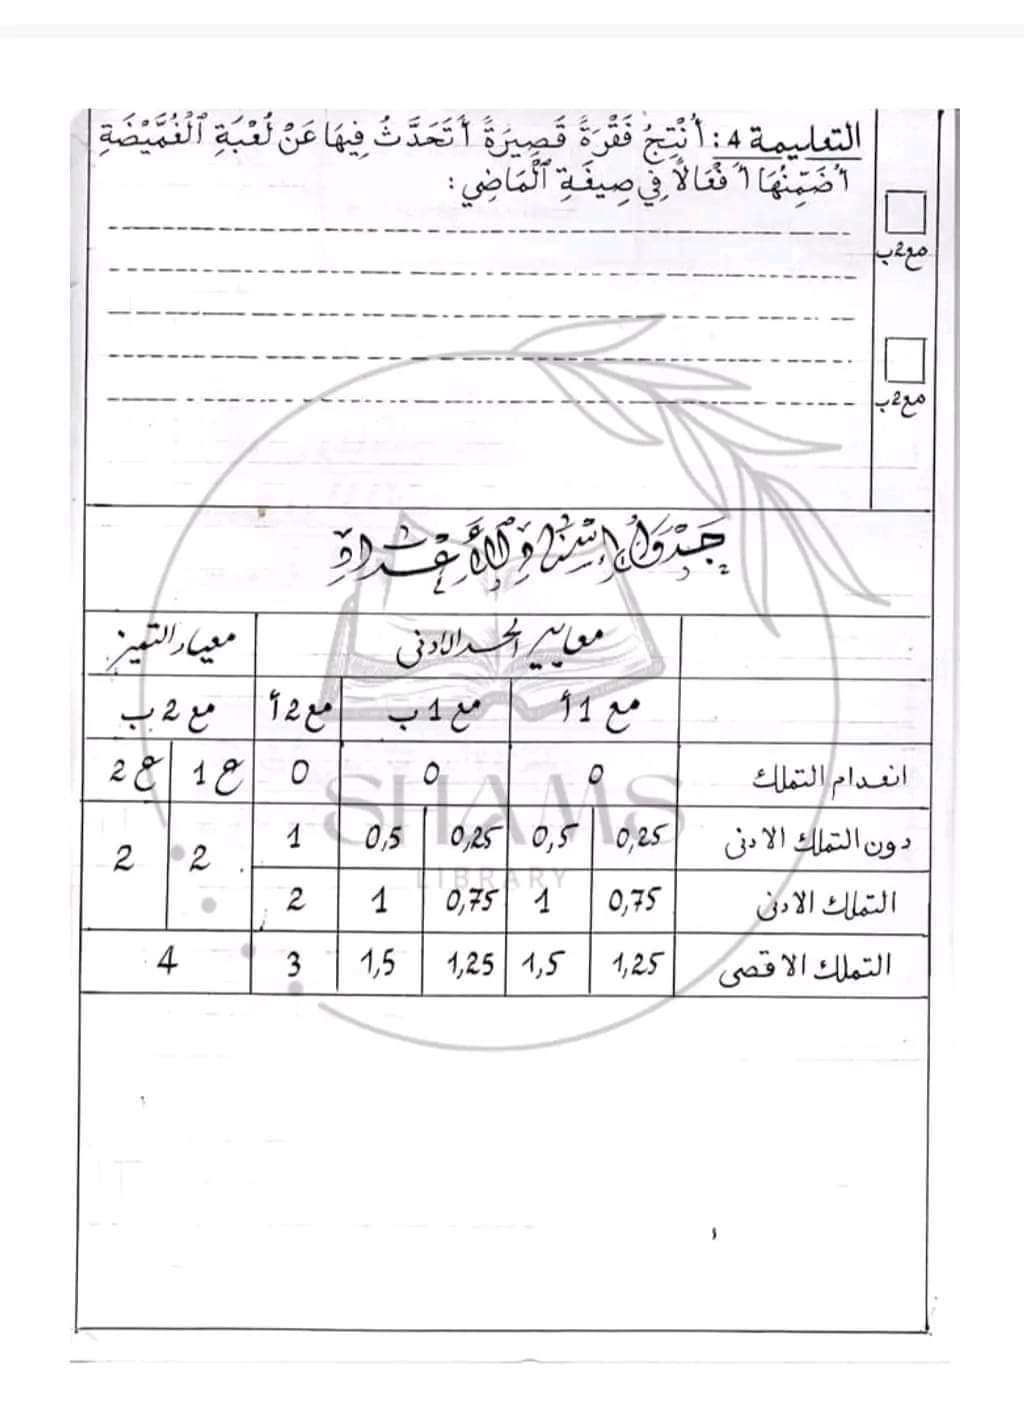 التعليمة 4: أُنْتِجُ فَقْرَةً قَصِيرَةً أَتَحَدَّثُ فِيهَا عَنْ لُعْبَةِ ٱلْغُمَّيْضَةِ
أُضَمِّنُهَا أَفْعَالًا فِي صِيغَةِ ٱلْمَاضِي:
مع2ب
مع2ب
جَدْوَلُ إِسْنَادِ ٱلْأَعْدَادِ
معايير الحد الادنى معيار التميز
مع 1أ مع 1ب مع 2أ مع 2 ب
انعدام التملك 0 0 0 ع 1 ع 2
دون التملك الادنى 0,25 0,5 0,25 0,5 1 2 2
التملك الادنى 0,75 1 0,75 1 2
التملك الاقصى 1,25 1,5 1,25 1,5 3 4
SHAMS
LIBRARY